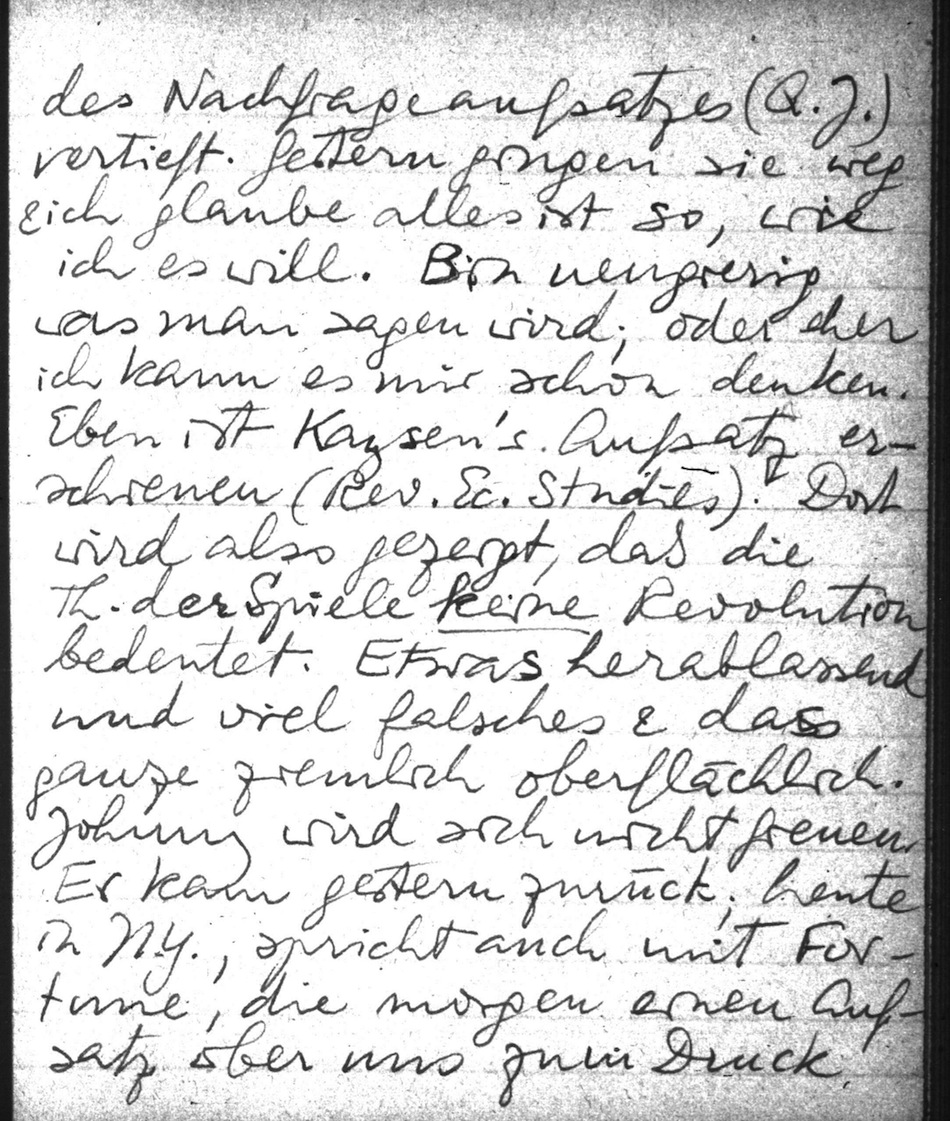 des Nachfrageaufsatzes (Q.J.)
vertieft. Gestern gingen sie weg
& ich glaube alles ist so, wie
ich es will. Bin neugierig
was man sagen wird; oder eher
ich kann es mir schon denken.
Eben ist Kaysen's Aufsatz er-
schienen (Rev. Ec. Studies). Dort
wird also gezeigt, daß die
Th. der Spiele keine Revolution
bedeutet. Etwas herablassend
und viel falsches & dass
ganze ziemlich oberflächlich.
Johnny wird sich nicht freuen.
Er kam gestern zurück; heute
in N.Y., spricht auch mit For-
tune, die morgen einen Auf-
satz über uns zum Druck